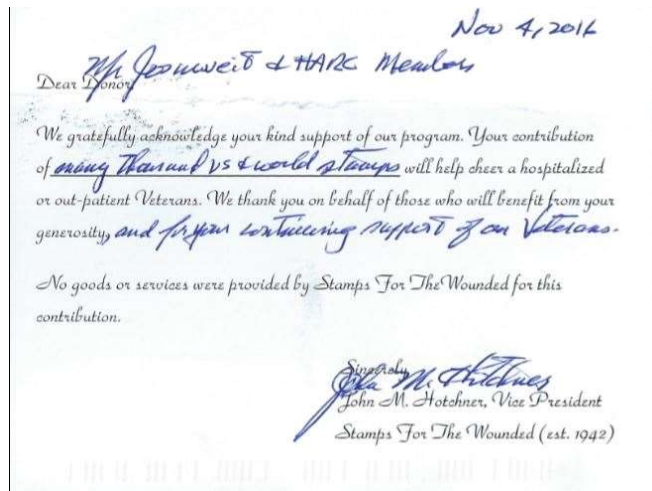 Nov 4, 2016
Mr & HARC Members
Dear Donor,
We gratefully acknowledge your kind support of our program. Your contribution
of many thousand US & world stamps will help cheer a hospitalized
or out-patient Veterans. We thank you on behalf of those who will benefit from your
generosity, and for your continuing support of our Veterans.
No goods or services were provided by Stamps For The Wounded for this
contribution.
Sincerely
John M. Hotchner
John M. Hotchner, Vice President
Stamps For The Wounded (est. 1942)